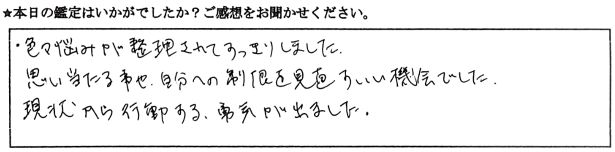 ★本日の鑑定はいかがでしたか？ご感想をお聞かせください。
・色々悩みが整理されてすっきりしました.
思い当たる事や、自分への制限を見直すいい機会でした.
現状から行動する、勇気が出ました。